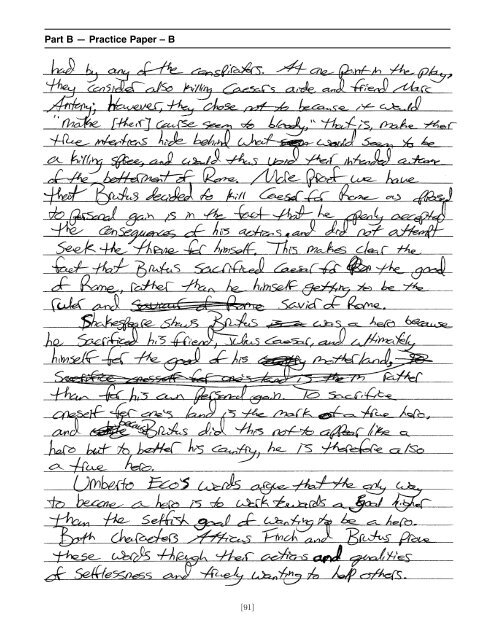 Part B — Practice Paper – B
had by any of the conspirators. At one point in the play,
they consider also killing Caesar's aide and friend Marc
Antony; However, they chose not to because it would
"make [their] course seem to bloody," that is, make their
true intentions hide behind what would seem to be
a killing spree, and would thus void their intended outcome
of the betterment of Rome. More proof we have
that Brutus decided to kill Caesar for Rome as oposed
to personal gain is in the fact that he openly accepted
the consequences of his actions and did not attempt
seek the throne for himself. This makes clear the
fact that Brutus sacrificed Caesar for the good
of Rome, rather than he himself getting to be the
ruler and Savior of Rome.
Shakespeare shows Brutus was a hero because
he sacrificed his friend, Julius Caesar, and ultimately
himself for the good of his motherland,
rather
than for his own personal gain. To sacrifice
oneself for one's land is the mark of a true hero,
and because Brutus did this not to appear like a
hero but to better his country, he is therefore also
a true hero.
Umberto Eco's words argue that the only way
to become a hero is to work towards a goal higher
than the selfish goal of wanting to be a hero.
Both characters Atticus Finch and Brutus prove
these words through their actions and qualities
of selflessness and truely wanting to help others.
[91]